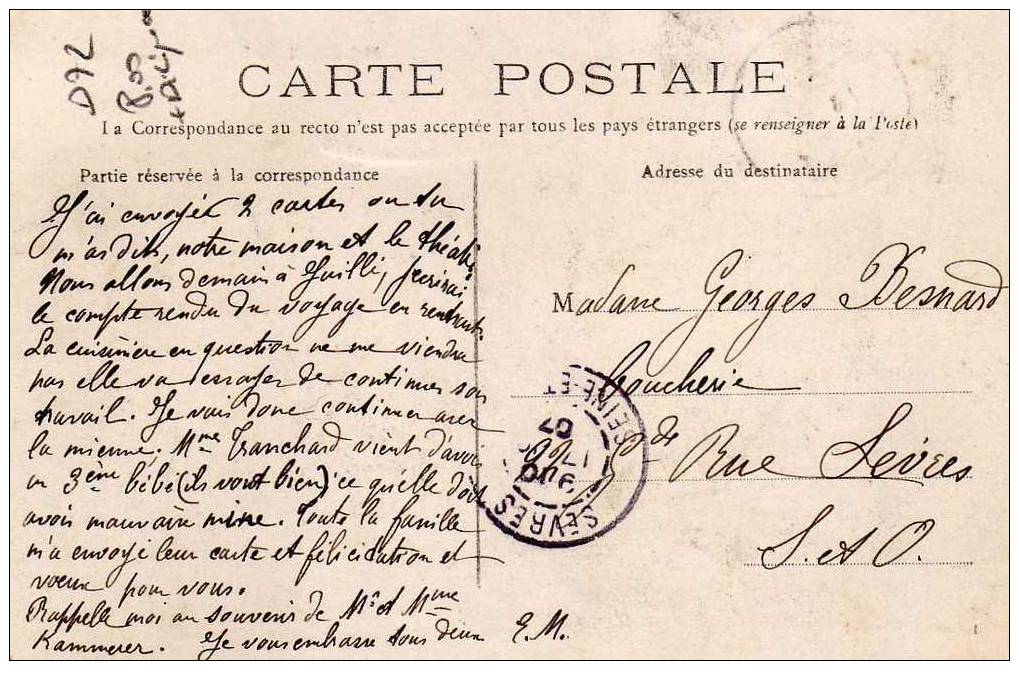 D92
8,00
CARTE POSTALE
La Correspondance au recto n'est pas acceptée par tous les pays étrangers (se renseigner à la Poste)
Partie réservée à la correspondance
J'ai envoyée 2 cartes ou tu
m'as dit, notre maison et le théâtre
Nous allons demain à j'écrirai
le compte rendu du voyage en rentrant.
La cuisinière en question ne me viendra
pas elle va essayer de continuer son
travail. Je vais donc continuer avec
la mienne. Mme Tranchard vient d'avoir
un 3ème bébé (ils vont bien) ce qu'elle doit
avoir mauvaise mine. Toute la famille
m'a envoyé leur carte et félicitation et
voeux pour vous.
Rappelle moi au souvenir de Mr et Mme
Kammerer. Je vous embrasse tous deux
E.M.
Adresse du destinataire
Madame Georges Besnard
Boucherie
Gde Rue Sèvres
S. et O.
SÈVRES
SEINE-ET-
07